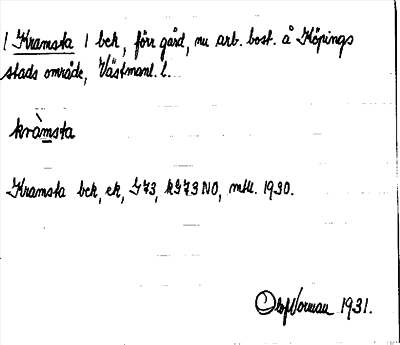 1 Kramsta 1 bck, förr gård, nu arb. bost. å Köpings
stads område, Västmanl. l.
kràmsta
Kramsta bck, ek, G73, kG73 NO, mtl. 1930.
Olof Norman 1931.